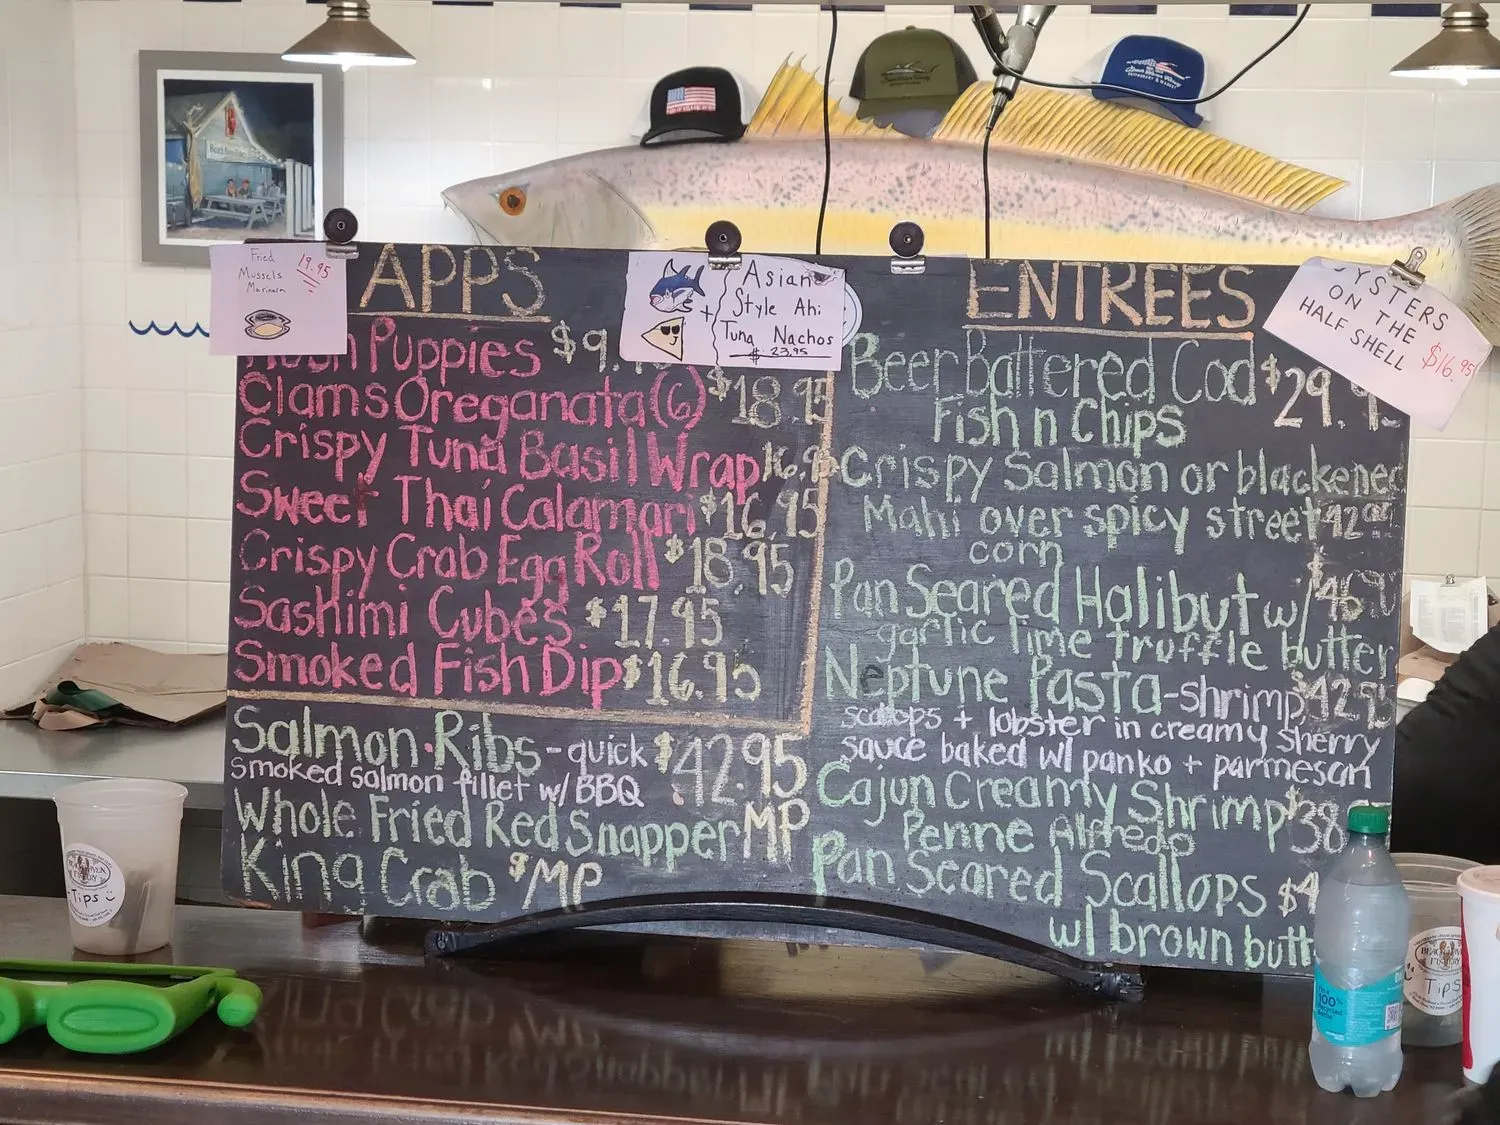 Fried
Mussels
Marinara
19.95
APPS
Puppies $9.
Clams Oreganata (6) $18.95
Crispy Tuna Basil Wrap 16.95
Sweet Thai Calamari $16.95
Crispy Crab Egg Roll $18.95
Sashimi Cubes $17.95
Smoked Fish Dip $16.95
Salmon Ribs - quick $42.95
smoked salmon fillet w/ BBQ
Whole Fried Red Snapper MP
King Crab $MP
+ Asian
Style Ahi
Tuna Nachos
$ 23.95
ENTREES
Beer Battered Cod $29.95
Fish n Chips
Crispy Salmon or blackened
Mahi over spicy street
corn
Pan Seared Halibut w/
garlic lime truffle butter
Neptune Pasta - shrimp $42.95
scallops + lobster in creamy sherry
sauce baked w/ panko + parmesan
Cajun Creamy Shrimp $38
Penne Alfredo
Pan Seared Scallops $4
w/ brown butt
OYSTERS
ON THE
HALF SHELL
$16.95
Tips
100%
Recycled
Bottle
BEACH HAVEN
FISHERY
Tips